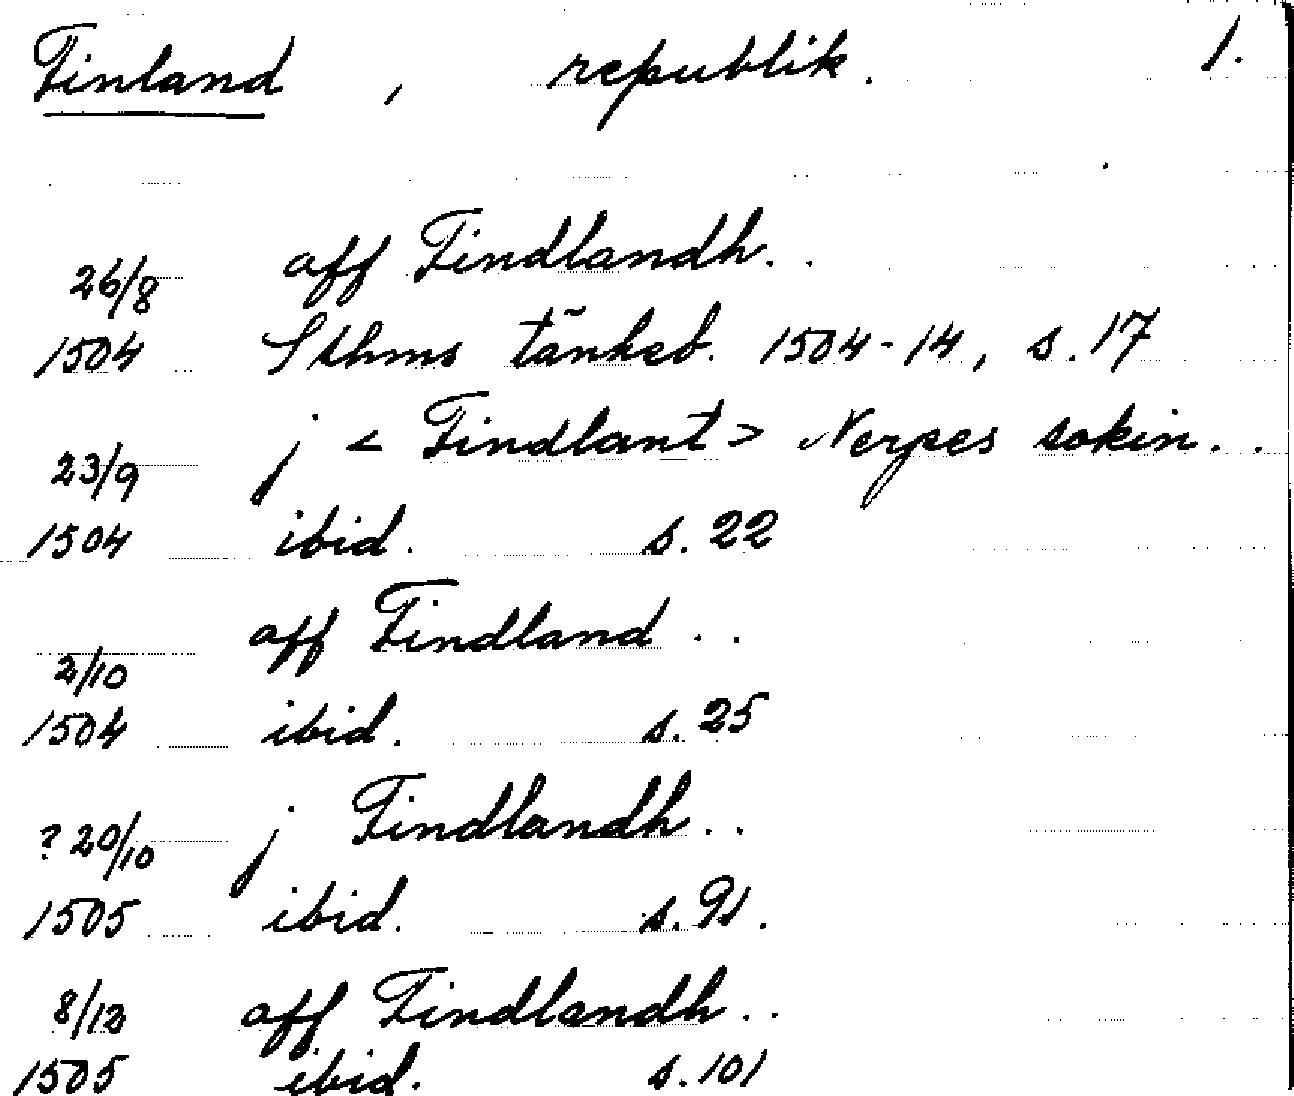 Finland, republik. 1.
26/8 aff Findlandh..
1504 Sthms tänkeb. 1504-14, s. 17
23/9 j < Findlant > Nerpes sokin..
1504 ibid. s. 22
2/10 aff Findland..
1504 ibid. s. 25
? 20/10 j Findlandh..
1505 ibid. s. 91.
8/12 aff Findlandh..
1505 ibid. s. 101